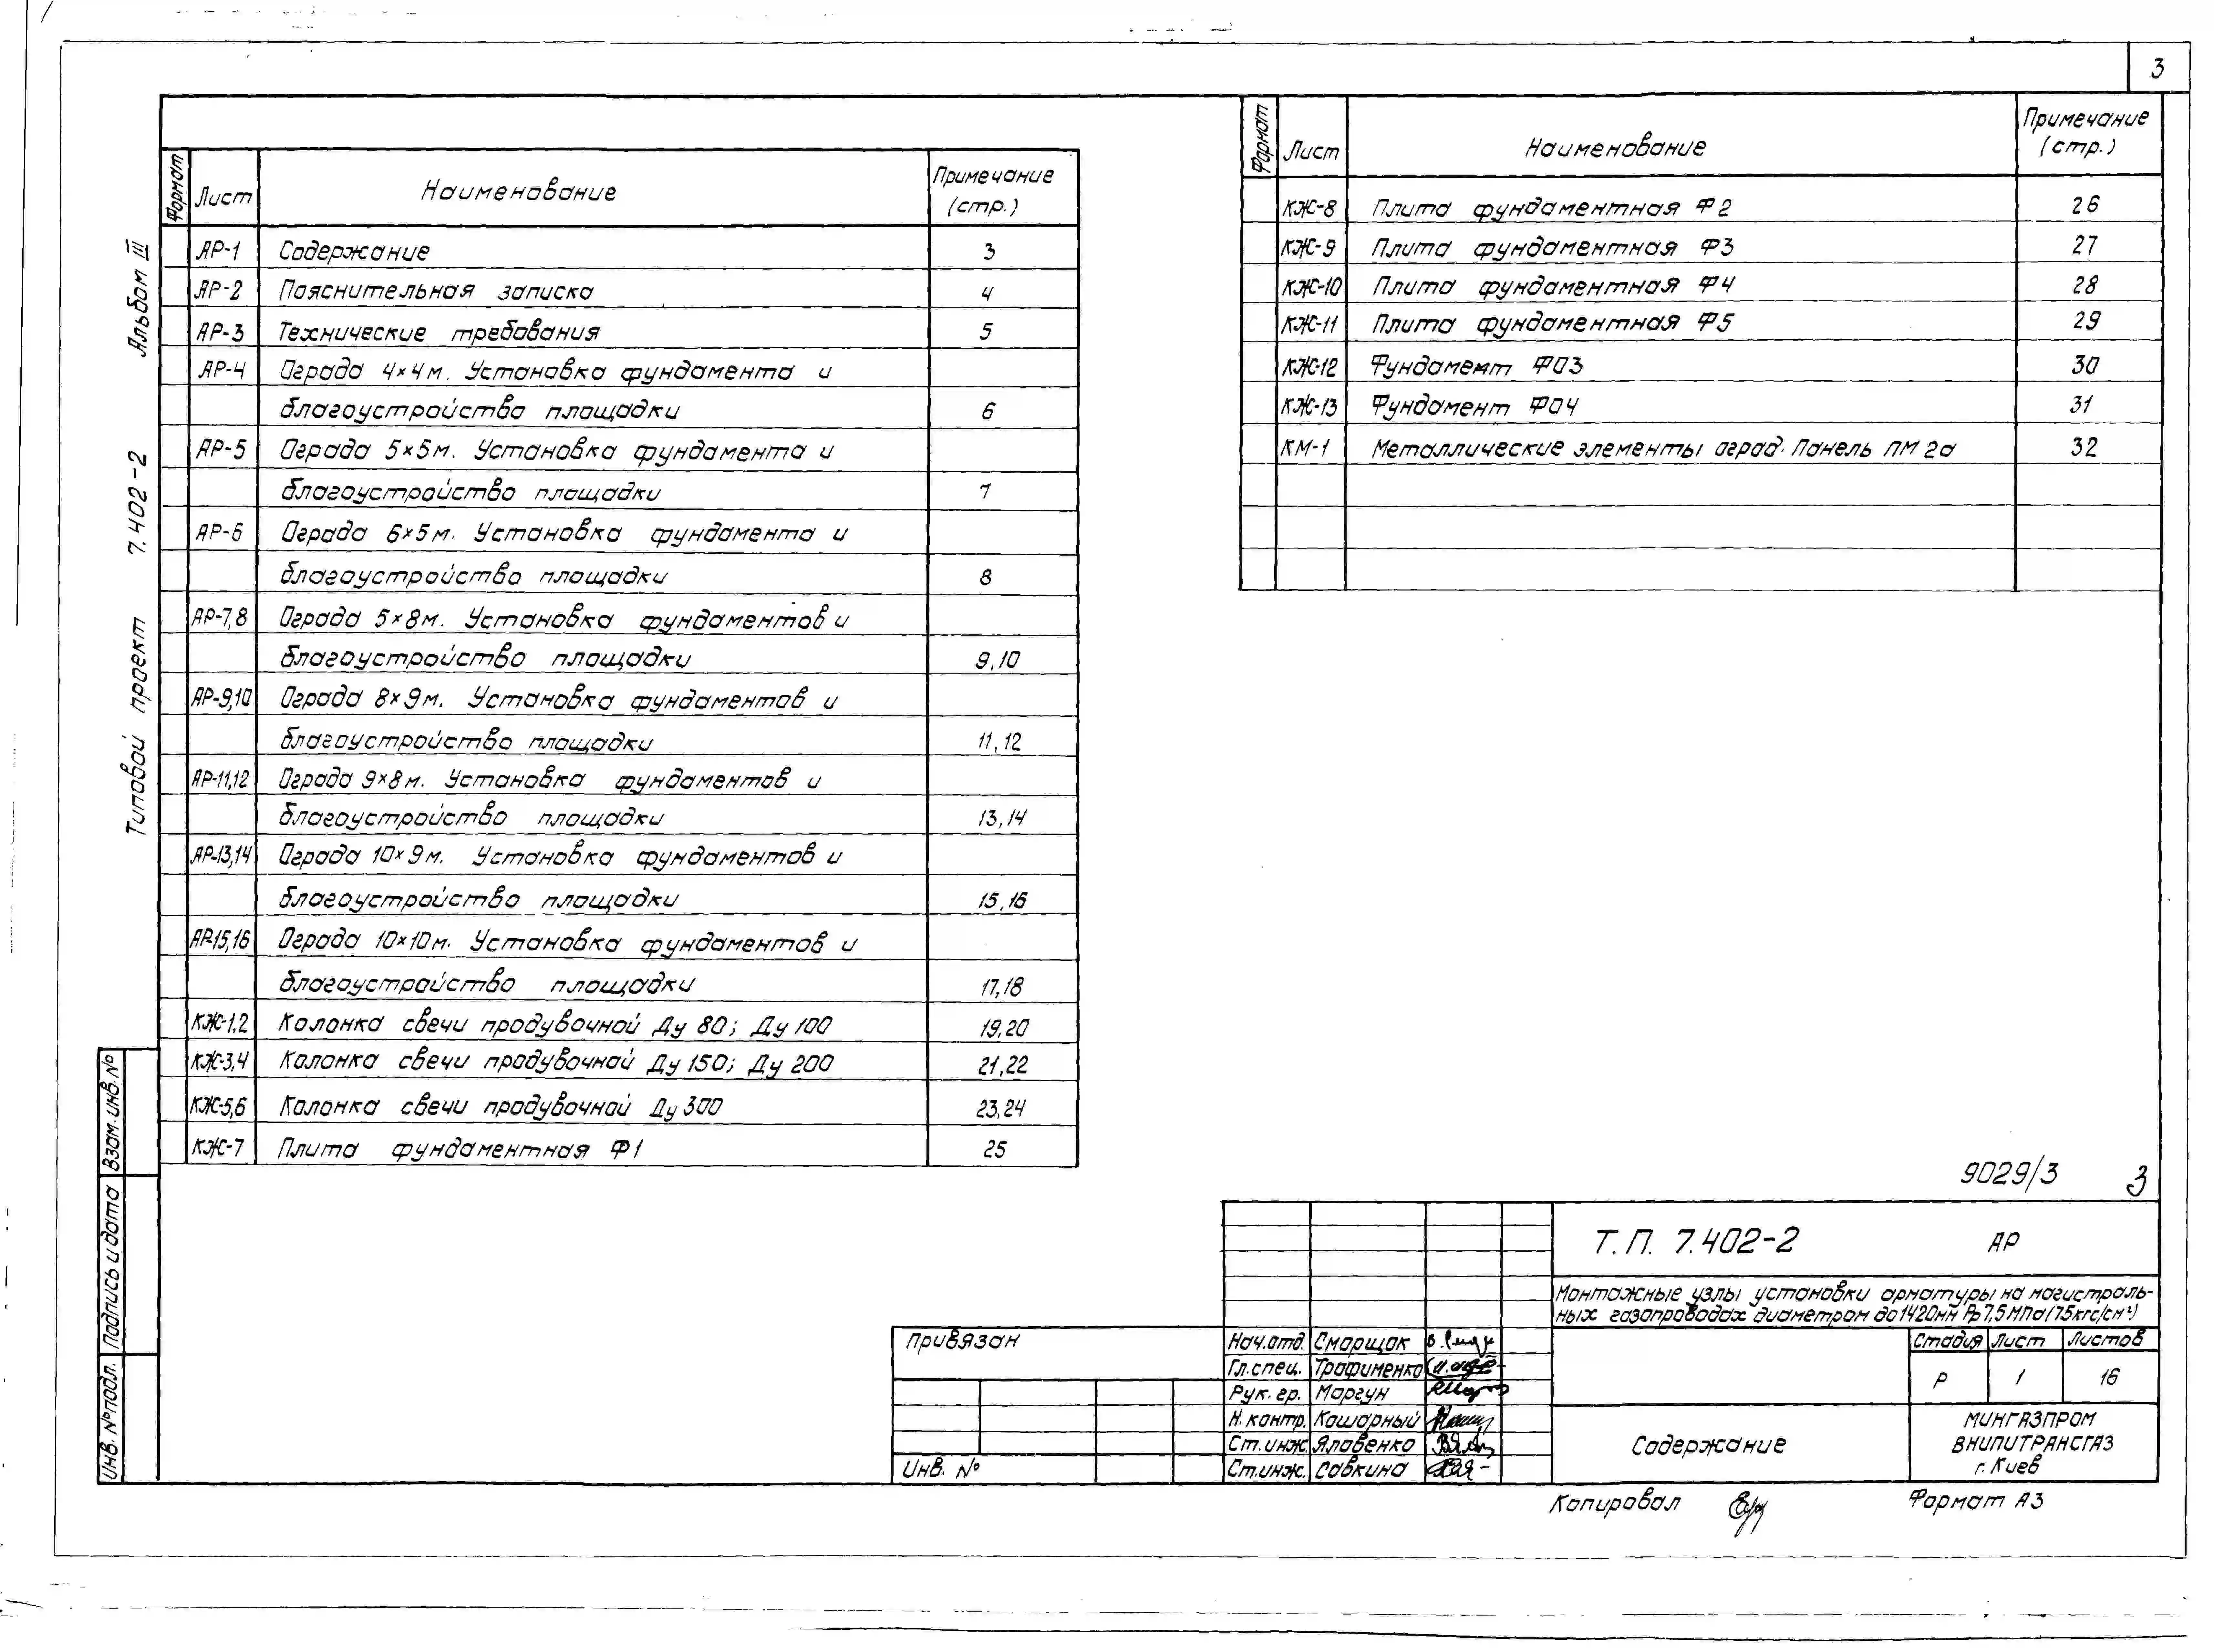 3
Альбом III
7.402-2
Типовой проект
Формат Лист Наименование Примечание (стр.)
АР-1 Содержание 3
АР-2 Пояснительная записка 4
АР-3 Технические требования 5
АР-4 Ограда 4×4м. Установка фундамента и
благоустройство площадки 6
АР-5 Ограда 5×5м. Установка фундамента и
благоустройство площадки 7
АР-6 Ограда 6×5м. Установка фундамента и
благоустройство площадки 8
АР-7,8 Ограда 5×8м. Установка фундаментов и
благоустройство площадки 9,10
АР-9,10 Ограда 8×9м. Установка фундаментов и
благоустройство площадки 11,12
АР-11,12 Ограда 9×8м. Установка фундаментов и
благоустройство площадки 13,14
АР-13,14 Ограда 10×9м. Установка фундаментов и
благоустройство площадки 15,16
АР-15,16 Ограда 10×10м. Установка фундаментов и
благоустройство площадки 17,18
КЖ-1,2 Колонка свечи продувочной Ду 80; Ду 100 19,20
КЖ-3,4 Колонка свечи продувочной Ду 150; Ду 200 21,22
КЖ-5,6 Колонка свечи продувочной Ду 300 23,24
КЖ-7 Плита фундаментная Ф1 25
Формат Лист Наименование Примечание (стр.)
КЖ-8 Плита фундаментная Ф2 26
КЖ-9 Плита фундаментная Ф3 27
КЖ-10 Плита фундаментная Ф4 28
КЖ-11 Плита фундаментная Ф5 29
КЖ-12 Фундамент ФО3 30
КЖ-13 Фундамент ФО4 31
КМ-1 Металлические элементы оград. Панель ПМ 2а 32
Взам. инв. №
Подпись и дата
Инв. № подл.
9029/3 3
Т.П. 7.402-2 АР
Монтажные узлы установки арматуры на магистраль-
ных газопроводах диаметром до 1420мм Рр 7,5 МПа (75кгс/см²)
Привязан
Инв. №
Нач.отд. Сморщок
Гл.спец. Трофименко
Рук. гр. Моргун
Н. контр. Кошарный
Ст.инж. Яловенко
Ст.инж. Савкина
Стадия Лист Листов
Р 1 16
Содержание
МИНГАЗПРОМ
ВНИПИТРАНСГАЗ
г. Киев
Копировал
Формат А3